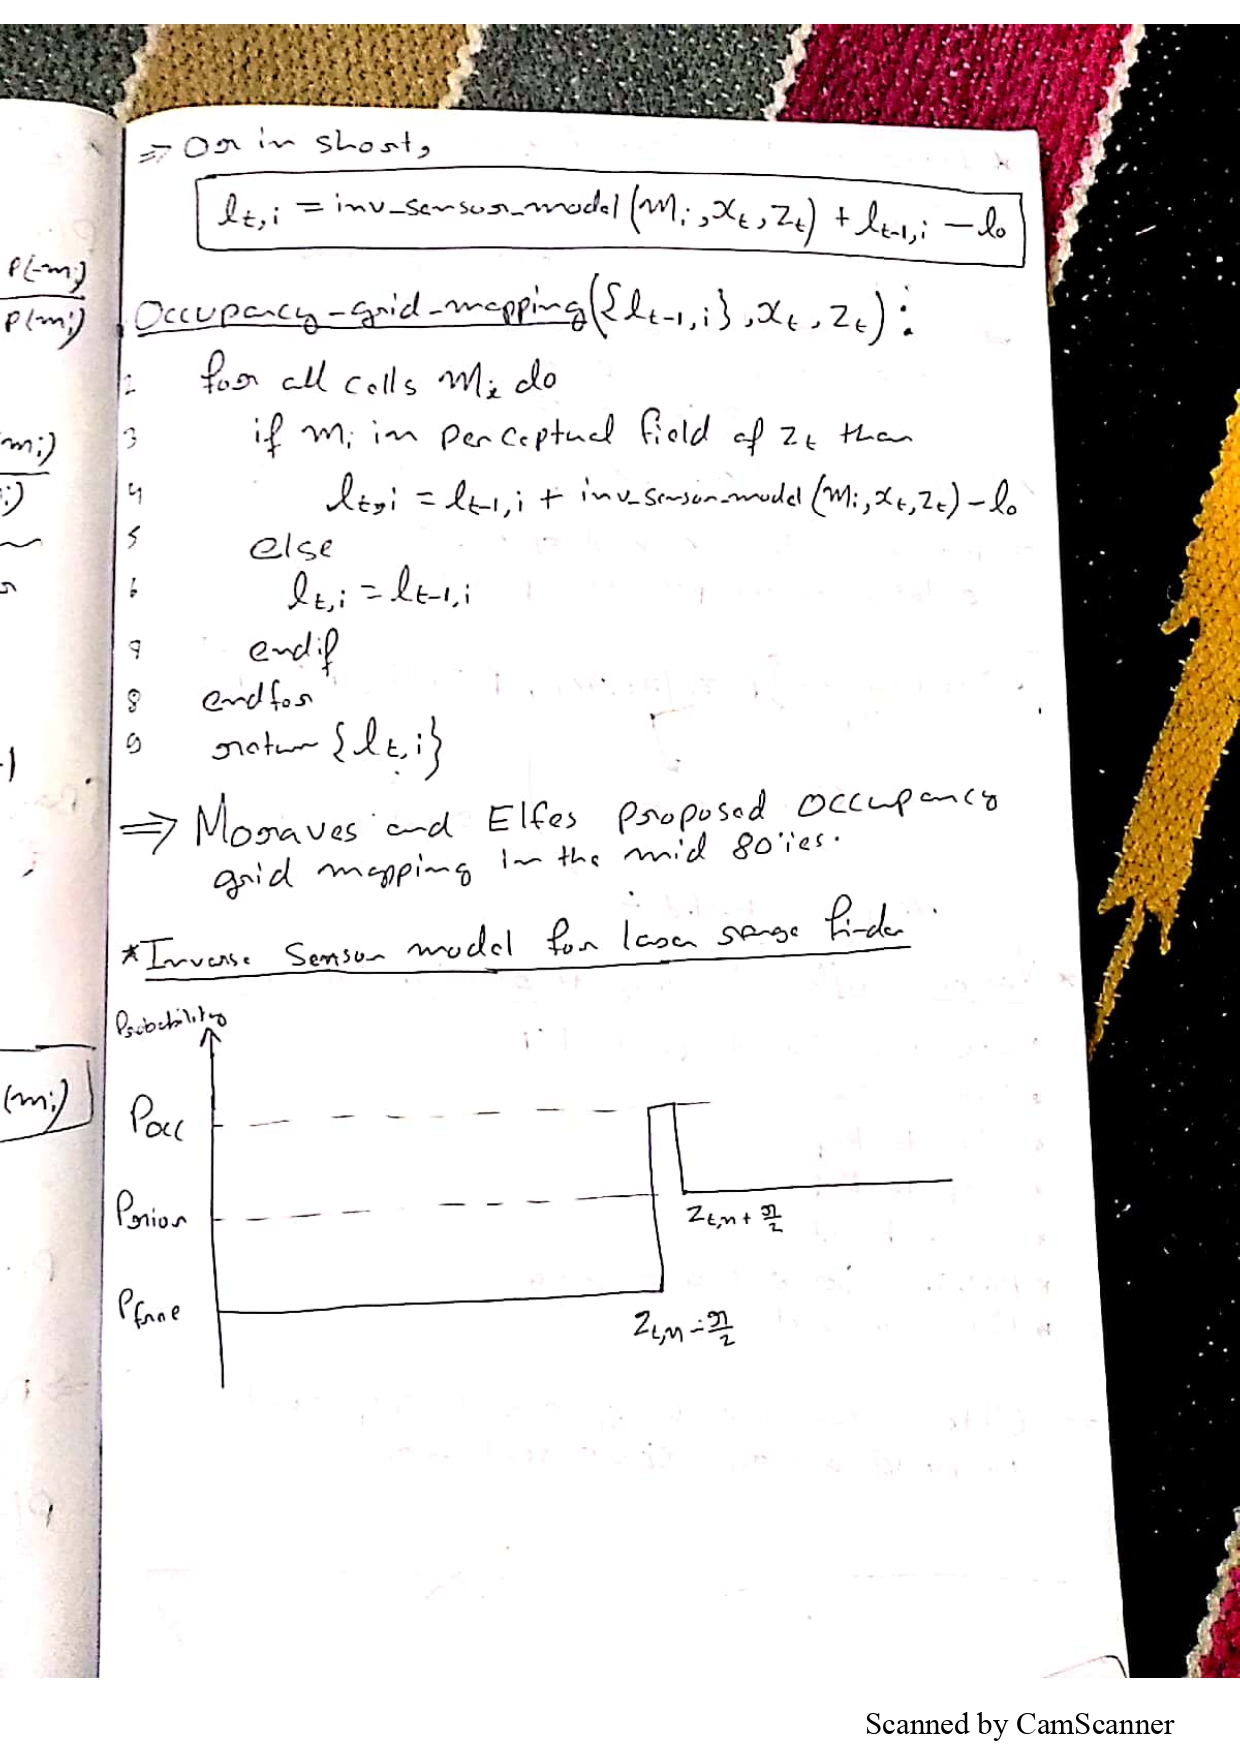 ⇒ Or in short,
l_{t,i} = inv_sensor_model (m_i, x_t, z_t) + l_{t-1,i} - l_0
P(¬m_i)
P(m_i)
Occupancy_grid_mapping({l_{t-1,i}}, x_t, z_t):
2 for all cells m_i do
3 if m_i in perceptual field of z_t then
4 l_{t,i} = l_{t-1,i} + inv_sensor_model (m_i, x_t, z_t) - l_0
5 else
6 l_{t,i} = l_{t-1,i}
7 endif
8 endfor
9 return {l_{t,i}}
⇒ Moraves and Elfes proposed occupancy
grid mapping in the mid 80'ies.
* Inverse Sensor model for laser range finder
Probability
P_occ
P_prior
z_{t,n} + r/2
P_free
z_{t,n} - r/2
(m_i)
Scanned by CamScanner